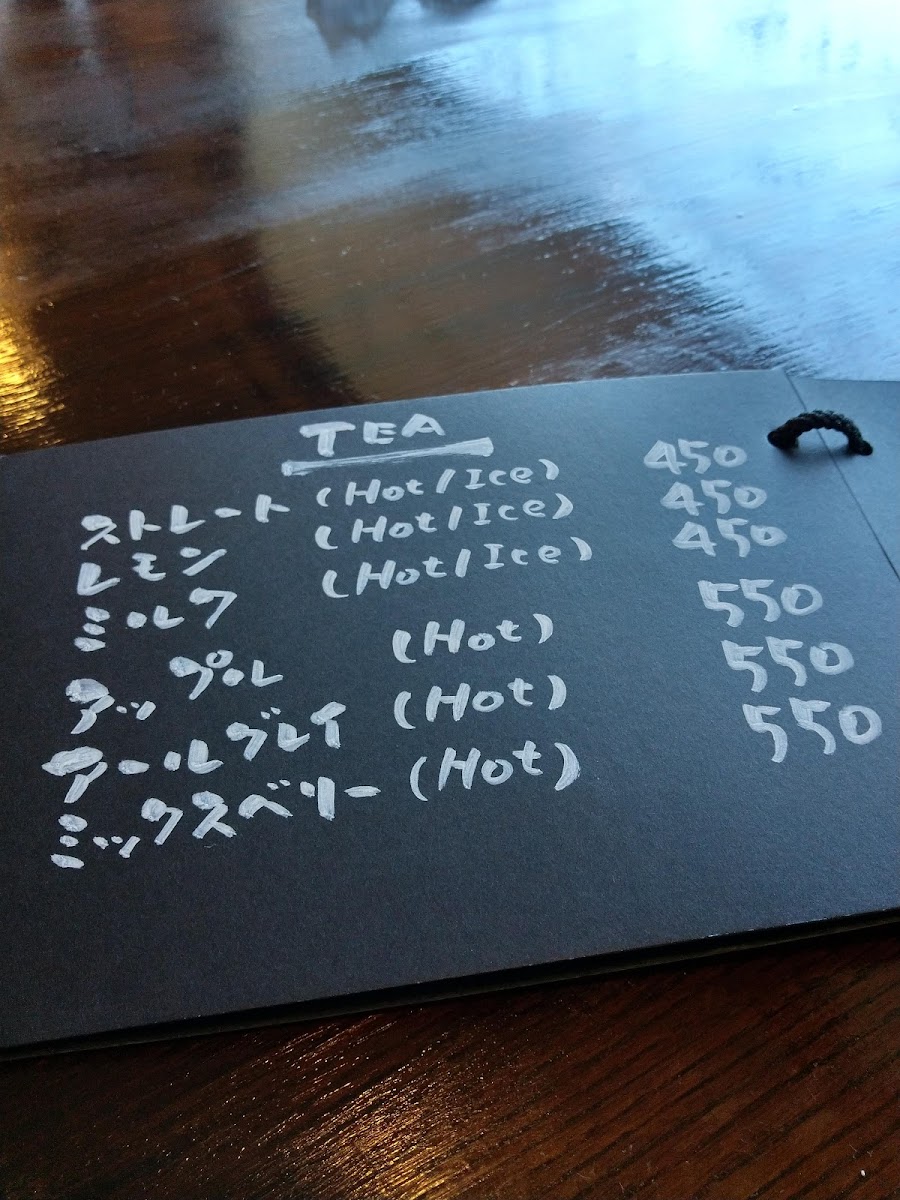 TEA
ストレート (Hot/Ice) 450
レモン (Hot/Ice) 450
ミルク (Hot/Ice) 450
アップル (Hot) 550
アールグレイ (Hot) 550
ミックスベリー (Hot) 550